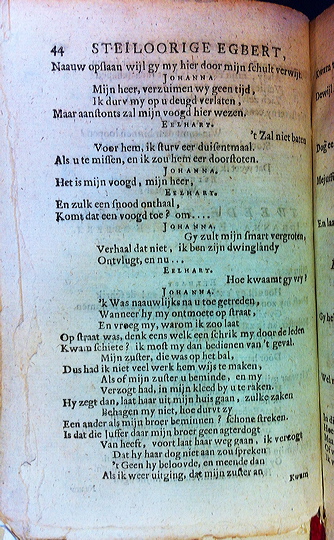 44 STEILOORIGE EGBERT,
Naauw opslaan wijl gy my hier door mijn schult verwijt.
JOHANNA.
Mijn heer, verzuimen wy geen tijd,
Ik durv my op u deugd verlaten,
Maar aanstonts zal mijn voogd hier wezen.
EELHART.
't Zal niet baten
Voor hem, ik sturv eer duisentmaal.
Als u te missen, en ik zou hem eer doorstoten.
JOHANNA.
Het is mijn voogd, mijn heer,
EELHART.
En zulk een snood onthaal,
Komt dat een voogd toe? om....
JOHANNA.
Gy zult mijn smart vergroten,
Verhaal dat niet, ik ben zijn dwinglandy
Ontvlugt, en nu...
EELHART.
Hoe kwaamt gy vry?
JOHANNA.
'k Was naauwlijks na u toe getreden,
Wanneer hy my ontmoete op straat,
En vreeg my, waarom ik zoo laat
Op straat was, denk eens welk een schrik my door de leden
Kwam schiete? ik most my dan bedienen van 't geval.
Mijn zuster, die was op het bal,
Dus had ik niet veel werk hem wijs te maken,
Als of mijn zuster u beminde, en my
Verzogt had, in mijn kleed by u te raken.
Hy zegt dan, laat haar uit mijn huis gaan, zulke zaken
Behagen my niet, hoe durvt zy
Een ander als mijn broer beminnen? schone streken.
Is dat die Juffer daar mijn broer geen agterdogt
Van heeft, voort laat haar weg gaan, ik verzogt
Dat hy haar dog niet aan zou spreken
't Geen hy beloovde, en meende dan
Als ik weer uitging, dat mijn zuster an
Kwam